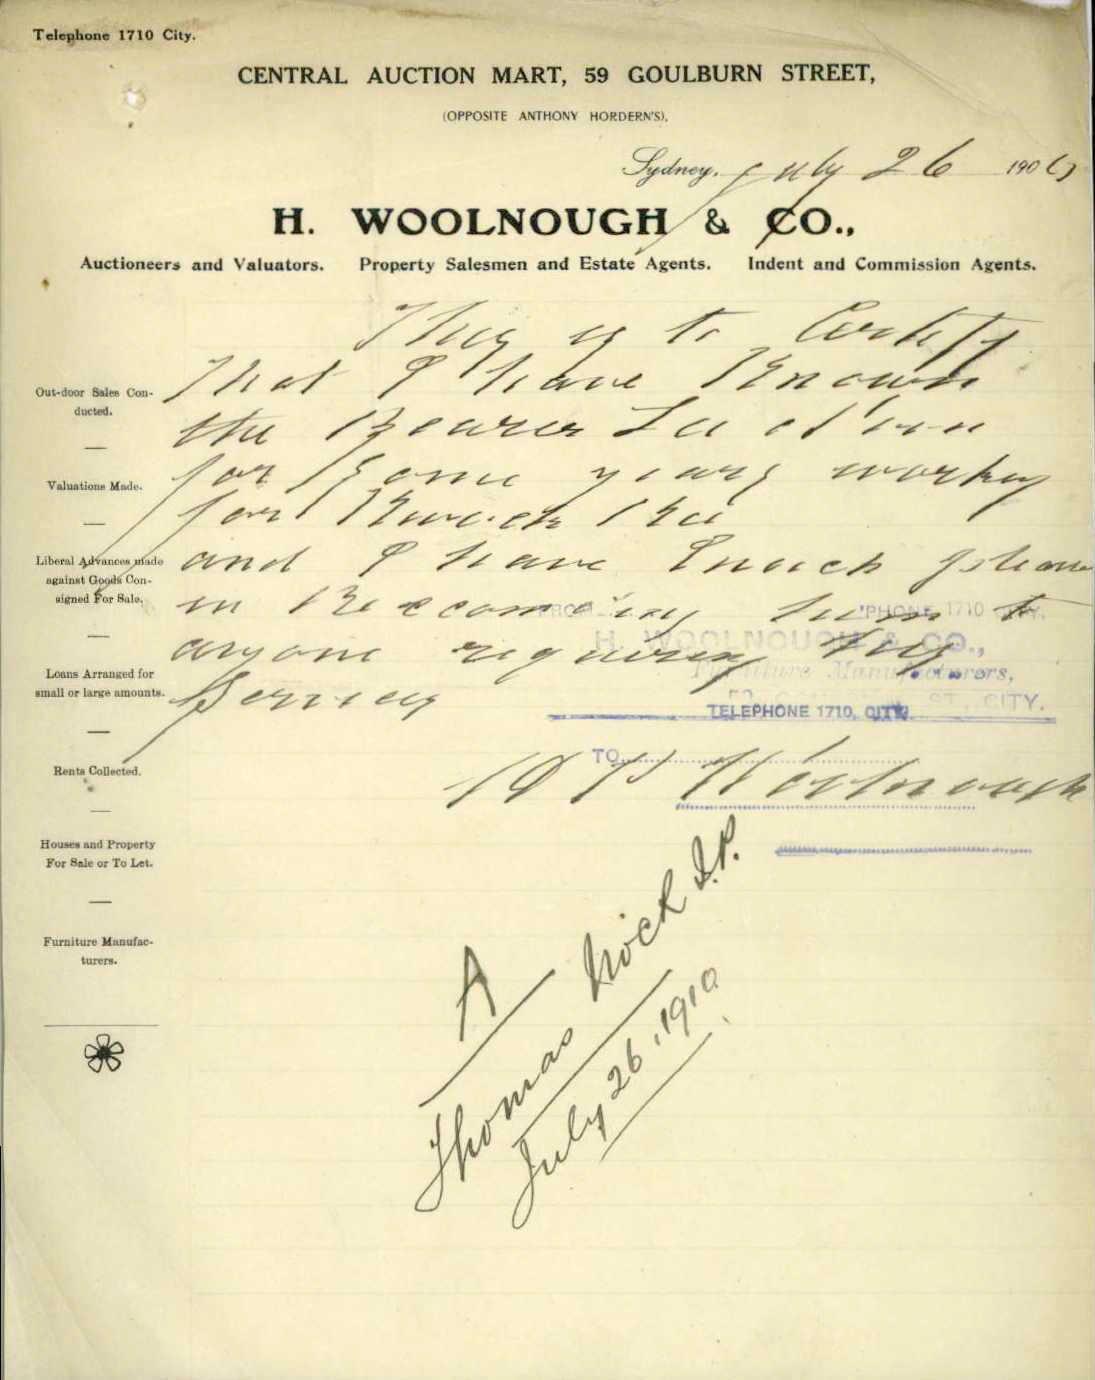 Telephone 1710 City.
CENTRAL AUCTION MART, 59 GOULBURN STREET,
(OPPOSITE ANTHONY HORDERN'S),
Sydney, July 26 190
H. WOOLNOUGH & CO.,
Auctioneers and Valuators. Property Salesmen and Estate Agents. Indent and Commission Agents.
This is to Certify
that I have Known
the Bearer
for Some years working
for
and I have much pleasure
in Reccomding him to
anyone requiring his
Services
H Woolnough
Out-door Sales Con-
ducted.
Valuations Made.
Liberal Advances made
against Goods Con-
signed For Sale.
Loans Arranged for
small or large amounts.
Rents Collected.
Houses and Property
For Sale or To Let.
Furniture Manufac-
turers.
FROM
'PHONE 1710 CITY.
H. WOOLNOUGH & CO.,
Furniture Manufacturers,
ST, CITY.
TELEPHONE 1710, CITY.
TO
A
Thomas Hock J.P.
July 26, 1910